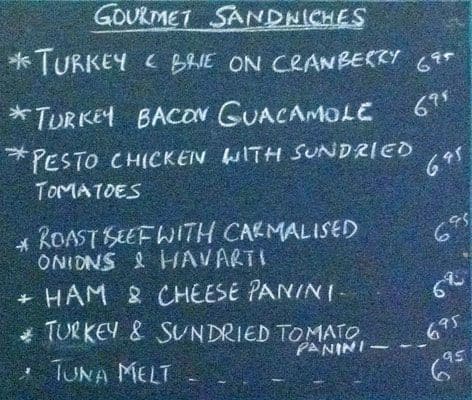 GOURMET SANDWICHES
* TURKEY & BRIE ON CRANBERRY 6.95
* TURKEY BACON GUACAMOLE 6.95
* PESTO CHICKEN WITH SUNDRIED 6.95
TOMATOES
* ROAST BEEF WITH CARMALISED 6.95
ONIONS & HAVARTI
* HAM & CHEESE PANINI 6.90
* TURKEY & SUNDRIED TOMATO 6.95
PANINI - - -
* TUNA MELT - - - - - 6.95